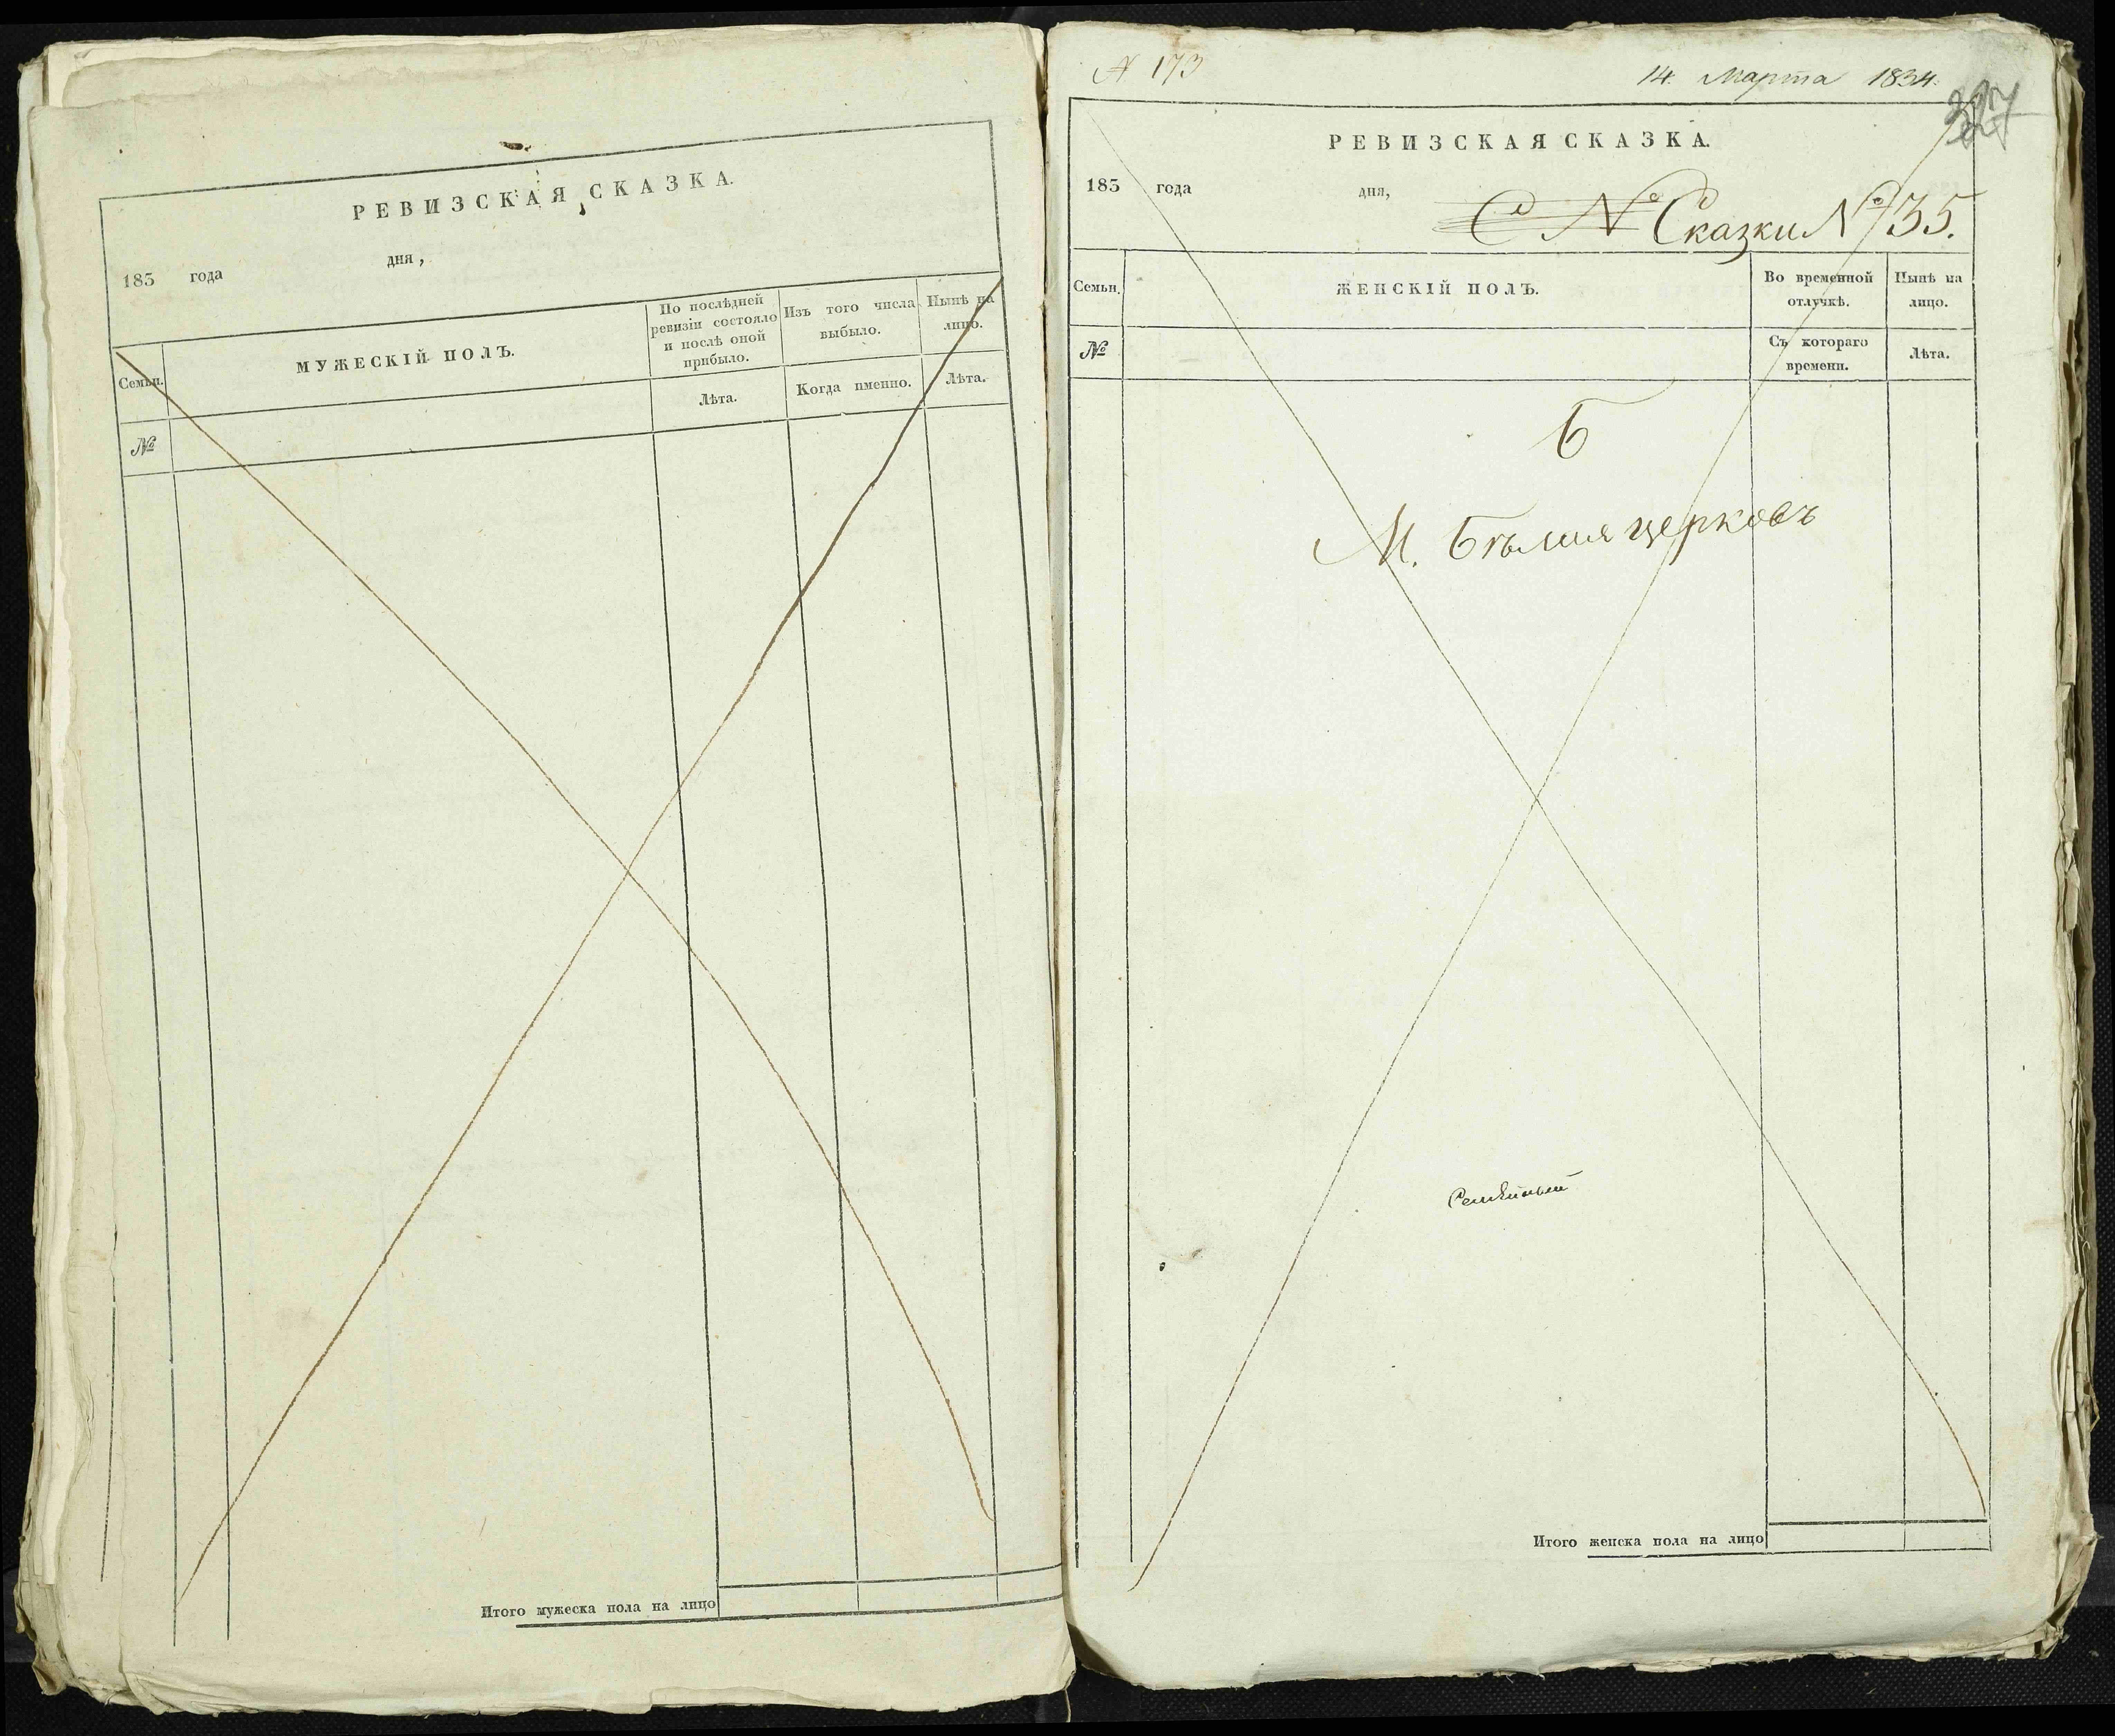 РЕВИЗСКАЯ СКАЗКА.
183 года дня,
Семьи.
МУЖЕСКІЙ ПОЛЪ.
По послѣдней
ревизіи состояло
и послѣ оной
прибыло.
Изъ того числа
выбыло.
Нынѣ на
лицо.
№
Лѣта.
Когда именно.
Лѣта.
Итого мужеска пола на лицо
№ 173
14. Марта 1834.
РЕВИЗСКАЯ СКАЗКА.
183 года дня,
С № Сказки № 135.
Семьи.
ЖЕНСКІЙ ПОЛЪ.
Во временной
отлучкѣ.
Нынѣ на
лицо.
№
Съ котораго
времени.
Лѣта.
Б
М. Бѣлая церковъ
Итого женска пола на лицо